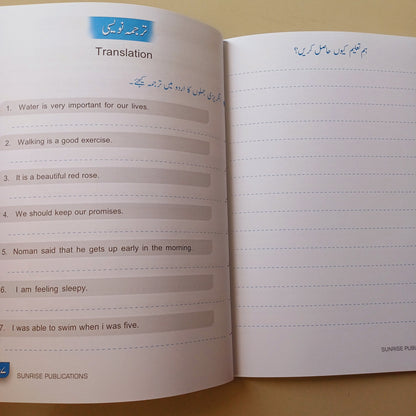 ترجمہ نویسی
Translation
انگریزی جملوں کا اردو میں ترجمہ کیجئے۔
1. Water is very important for our lives.
2. Walking is a good exercise.
3. It is a beautiful red rose.
4. We should keep our promises.
5. Noman said that he gets up early in the morning.
6. I am feeling sleepy.
7. I was able to swim when i was five.
SUNRISE PUBLICATIONS
ہم تعلیم کیوں حاصل کریں؟
SUNRISE PUBL